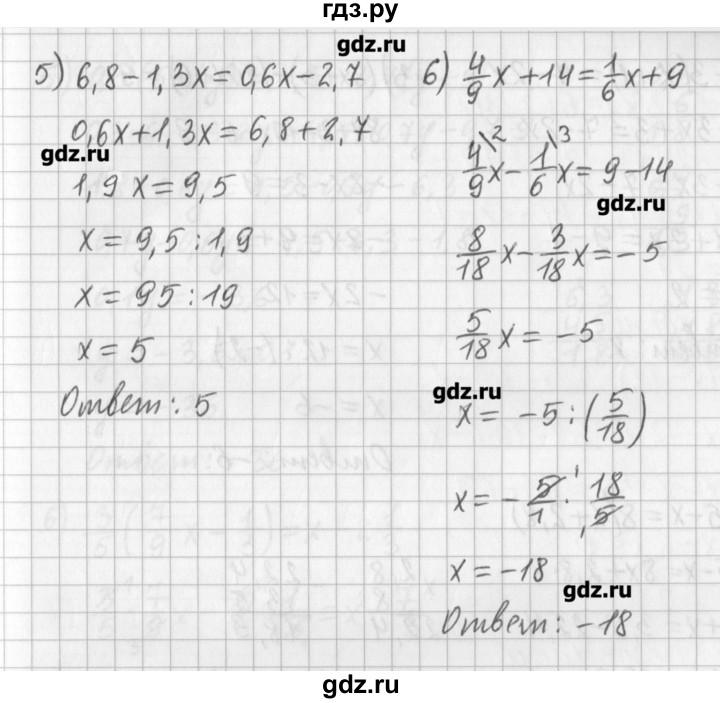 гдз.ру
gdz.ru
5) 6,8 − 1,3x = 0,6x − 2,7
0,6x + 1,3x = 6,8 + 2,7
gdz.ru
1,9 x = 9,5
x = 9,5 : 1,9
x = 95 : 19
x = 5
Ответ: 5
6) 4/9 x + 14 = 1/6 x + 9
4/9 \2 x − 1/6 \3 x = 9 − 14
gdz.ru
8/18 x − 3/18 x = −5
5/18 x = −5
gdz.ru
x = −5 : (5/18)
x = − 5/1 · 18/5 1 1
x = −18
gdz.ru
Ответ: −18
gdz.ru